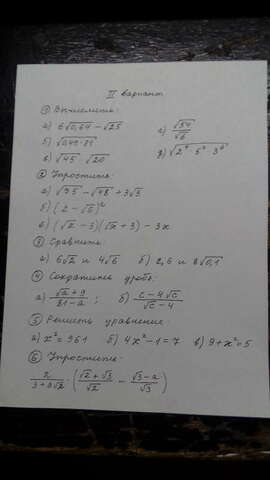 II вариант
① Вычислить:
а) 6√0,64 - √25 г) √54/√6
б) √0,49·81
в) √45 · √20 д) √2⁴ · 5² · 3⁶
② Упростить:
а) √75 - √48 + 3√3
б) (2 - √6)²
в) (√x - 3)(√x + 3) - 3x
③ Сравнить:
а) 6√2 и 4√6 б) 2,6 и 8√0,1
④ Сократите дробь:
а) (√a + 9)/(81 - a) ; б) (c - 4√c)/(√c - 4)
⑤ Решить уравнение:
а) x² = 961 б) 4x² - 1 = 7 в) 9 + x² = 5
⑥ Упростить: